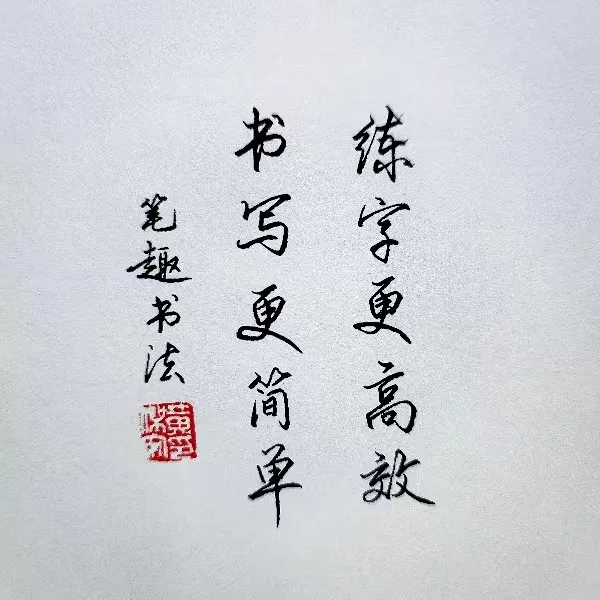 练字更高效
书写更简单
笔趣书法